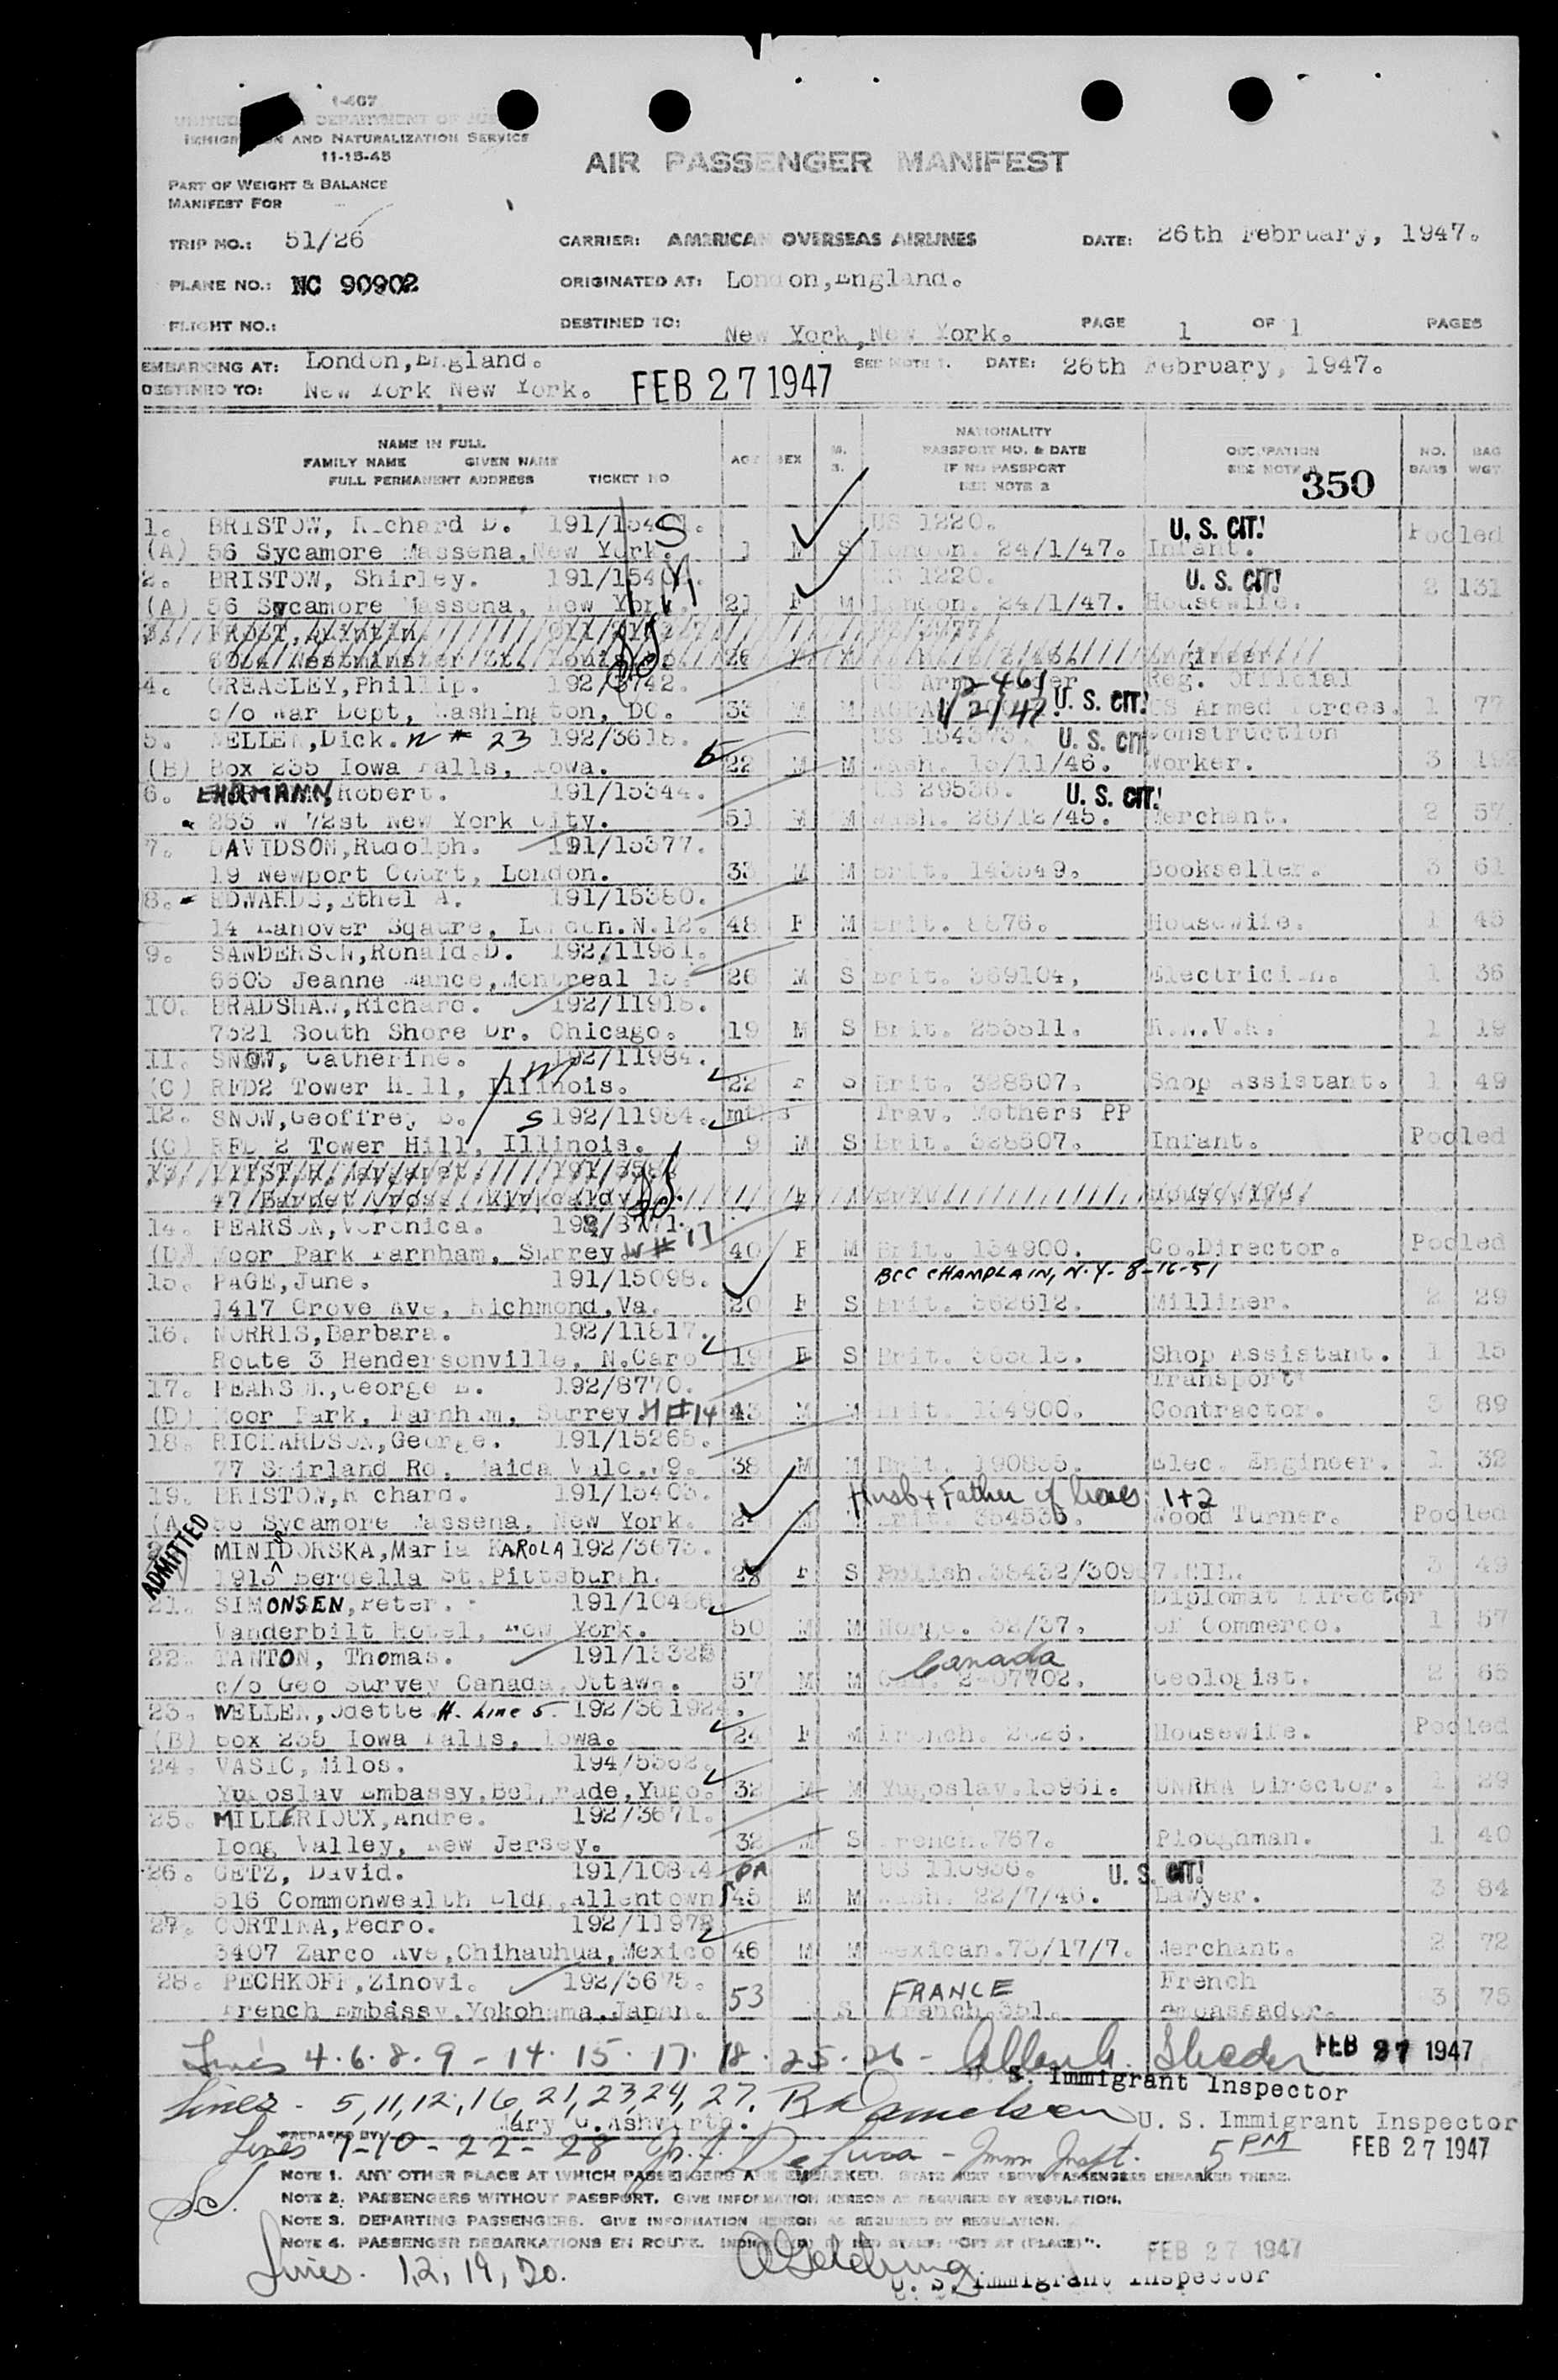 1-467
IMMIGRATION AND NATURALIZATION SERVICE
11-15-45
AIR PASSENGER MANIFEST
PART OF WEIGHT & BALANCE
MANIFEST FOR
TRIP NO.: 51/26 CARRIER: AMERICAN OVERSEAS AIRLINES DATE: 26th February, 1947.
PLANE NO.: NC 90902 ORIGINATED AT: London, England.
FLIGHT NO.: DESTINED TO: New York, New York. PAGE 1 OF 1 PAGES
EMBARKING AT: London, England. SEE NOTE 1. DATE: 26th February, 1947.
DESTINED TO: New York New York. FEB 27 1947
NAME IN FULL
FAMILY NAME GIVEN NAME
FULL PERMANENT ADDRESS TICKET NO
AGE SEX M. S.
NATIONALITY
PASSPORT NO. & DATE
IF NO PASSPORT
SEE NOTE 2
OCCUPATION
SEE NOTE
350
NO. BAGS BAG WGT
1. BRISTOW, Richard D. US 1220. U. S. CIT. Pooled
(A) 56 Sycamore Massena, New York. 1 M S London. 24/1/47. Infant.
2. BRISTOW, Shirley. US 1220. U. S. CIT. 2 131
(A) 56 Sycamore Massena, New York. 21 F M London. 24/1/47. Housewife.
4. GREASLEY, Phillip. 192/3742. US Army Reg. Official
c/o War Dept, Washington, DC. 33 M M U. S. CIT. US Armed Forces. 1 77
5. WELLEN, Dick. W # 23 192/3618. U. S. CIT Construction
(B) Box 235 Iowa Falls, Iowa. 22 M M Wash. 15/11/46. Worker. 3
6. EHRMANN, Robert. 191/15344. US 29536. U. S. CIT.
253 W 72st New York City. 51 M M Wash. 28/12/45. Merchant. 2 57
7. DAVIDSON, Rudolph. 191/15377.
19 Newport Court, London. 33 M M Brit. 143549. Bookseller. 3 61
8. EDWARDS, Ethel A. 191/15380.
14 Hanover Sqaure, London. N.12. 48 F M Brit. 8876. Housewife. 1 45
9. SANDERSON, Ronald.D. 192/11981.
6605 Jeanne Mance, Montreal 26 M S Brit. 369104, Electrician. 1 36
10. BRADSHAW, Richard. 192/11918.
7321 South Shore Dr. Chicago. 19 M S Brit. 253511. R.N.V.R. 1 19
11. SNOW, Catherine. 192/11984.
(C) RFD2 Tower Hill, Illinois. 22 F S Brit. 328507. Shop Assistant. 1 49
12. SNOW, Geoffrey D. S 192/11984. mths Trav. Mothers PP
(C) RFD 2 Tower Hill, Illinois. 9 M S Brit. 328507. Infant. Pooled
14. PEARSON, Veronica. 192/8771.
(D) Moor Park Farnham, Surrey W # 17 40 F M Brit. 134900. Co. Director. Pooled
15. PAGE, June. 191/15098. BCC CHAMPLAIN, N.Y. 8-16-51
1417 Grove Ave, Richmond, Va. 20 F S Brit. 362612. Milliner. 2 29
16. NORRIS, Barbara. 192/11817.
Route 3 Hendersonville, N.Caro 19 F S Brit. Shop Assistant. 1 15
17. PEARSON, George E. 192/8770. Transport
(D) Moor Park, Farnham, Surrey H #14 43 M M Brit. 134900. Contractor. 3 89
18. RICHARDSON, George. 191/15265.
77 Shirland Rd. Maida Vale. W9. 38 M M Brit. Elec. Engineer. 1 32
19. BRISTOW, Richard. 191/15403. Husb + Father of lines 1+2
(A) 56 Sycamore Massena, New York. Brit. Wood Turner. Pooled
ADMITTED MINIDORSKA, Maria KAROLA 192/3673.
1913 Berdella St. Pittsburgh. 28 F S Polish. 3 49
21. SIMONSEN, Peter. 191/10486 Diplomat Director
Vanderbilt Hotel, New York. 50 M M Norge. 32/37. of Commerce. 1 57
22. TANTON, Thomas. Canada
c/o Geo Survey Canada, Ottawa. 57 M M Can. 2-07702. Geologist. 2 65
23. WELLEN, Odette H. Line 5. 192/361924.
(B) Box 235 Iowa Falls, Iowa. 24 F M French. 2626. Housewife. Pooled
24. VASIC, Milos. 194/5562.
Yugoslav Embassy, Belgrade, Yugo. 32 M M Yugoslav. 15961. UNRRA Director. 1 29
25. MILLERIOUX, Andre. 192/3671.
Long Valley, New Jersey. 32 M S French. 767. Ploughman. 1 40
26. GETZ, David. 191/10844 PA U. S. CIT.
516 Commonwealth Bldg, Allentown 45 M M Wash. 22/7/46. Lawyer. 3 84
27. CORTINA, Pedro. 192/11978
3407 Zarco Ave, Chihauhua, Mexico 46 M M Mexican. 73/17/7. Merchant. 2 72
28. PECHKOFF, Zinovi. 192/3675. FRANCE French
French Embassy, Yokohama, Japan. 53 S French. 351. Ambassador. 3 75
Lines 4.6.8.9-14.15.17.18.25.26- FEB 27 1947
U. S. Immigrant Inspector
Lines - 5,11,12,16,21,23,24,27. U. S. Immigrant Inspector
Mary C. Ashwirth.
PREPARED BY
Lines 7-10-22-28 De Luca - Imm Inspt. 5 PM FEB 27 1947
NOTE 1. ANY OTHER PLACE AT WHICH PASSENGERS ARE EMBARKED. STATE NEXT ABOVE PASSENGERS EMBARKED THERE.
NOTE 2. PASSENGERS WITHOUT PASSPORT. GIVE INFORMATION HEREON AS REQUIRED BY REGULATION.
NOTE 3. DEPARTING PASSENGERS. GIVE INFORMATION HEREON AS REQUIRED BY REGULATION.
NOTE 4. PASSENGER DEBARKATIONS EN ROUTE. "OFF AT (PLACE)".
FEB 27 1947
Lines. 1,2,19,20.
U. S. Immigrant Inspector